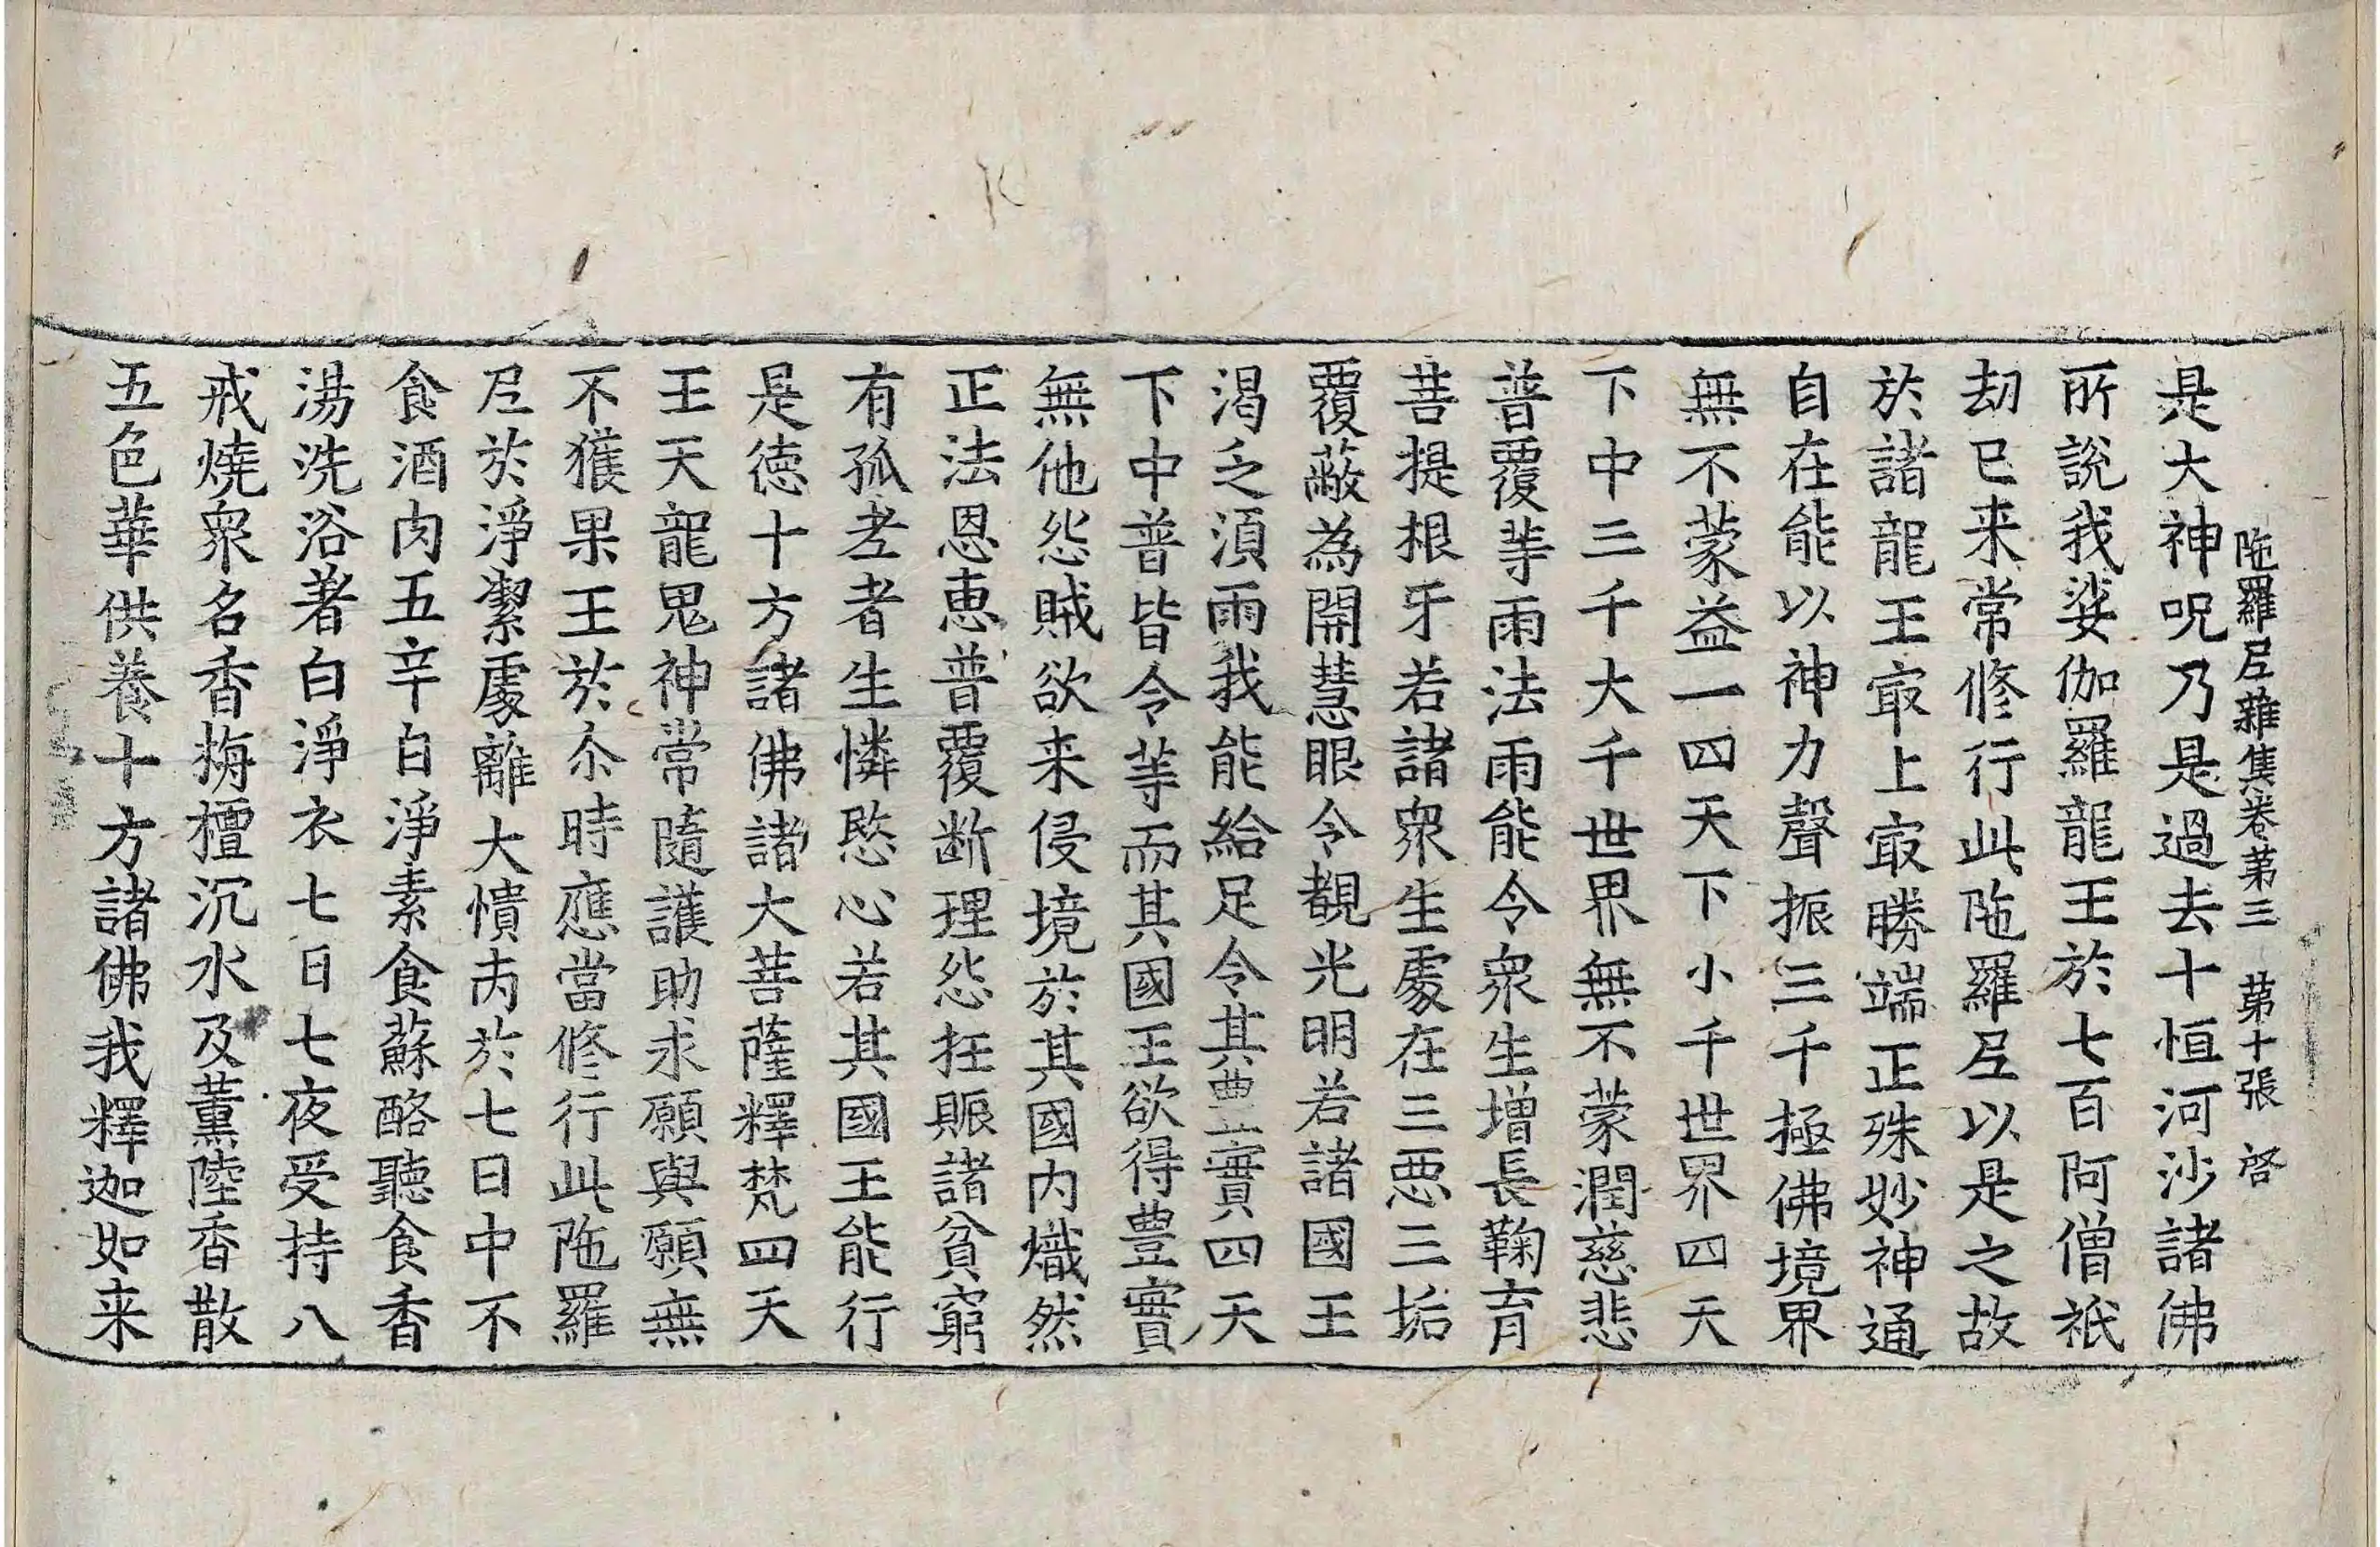 陁羅尼雜集卷第三　第十張　啓
是大神呪乃是過去十恒河沙諸佛
所說我娑伽羅龍王於七百阿僧祇
劫已来常修行此陁羅尼以是之故
於諸龍王冣上冣勝端正殊妙神通
自在能以神力聲振三千極佛境界
無不蒙益一四天下小千世界四天
下中三千大千世界無不蒙潤慈悲
普覆等雨法雨能令衆生增長鞠育
菩提根牙若諸衆生處在三惡三垢
覆蔽為開慧眼令覩光明若諸國王
渴乏湏雨我能給足令其豊實四天
下中普皆令等而其國王欲得豊實
無他怨賊欲来侵境於其國内熾然
正法恩惠普覆断理怨抂賑諸貧窮
有孤老者生憐愍心若其國王能行
是德十方諸佛諸大菩薩釋梵四天
王天龍鬼神常隨護助求願與願無
不獲果王於尒時應當修行此陁羅
尼於淨潔處離大憒丙於七日中不
食酒肉五辛白淨素食蘇酪聽食香
湯洗浴著白淨衣七日七夜受持八
戒燒衆名香栴檀沉水及薰陸香散
五色華供養十方諸佛我釋迦如来